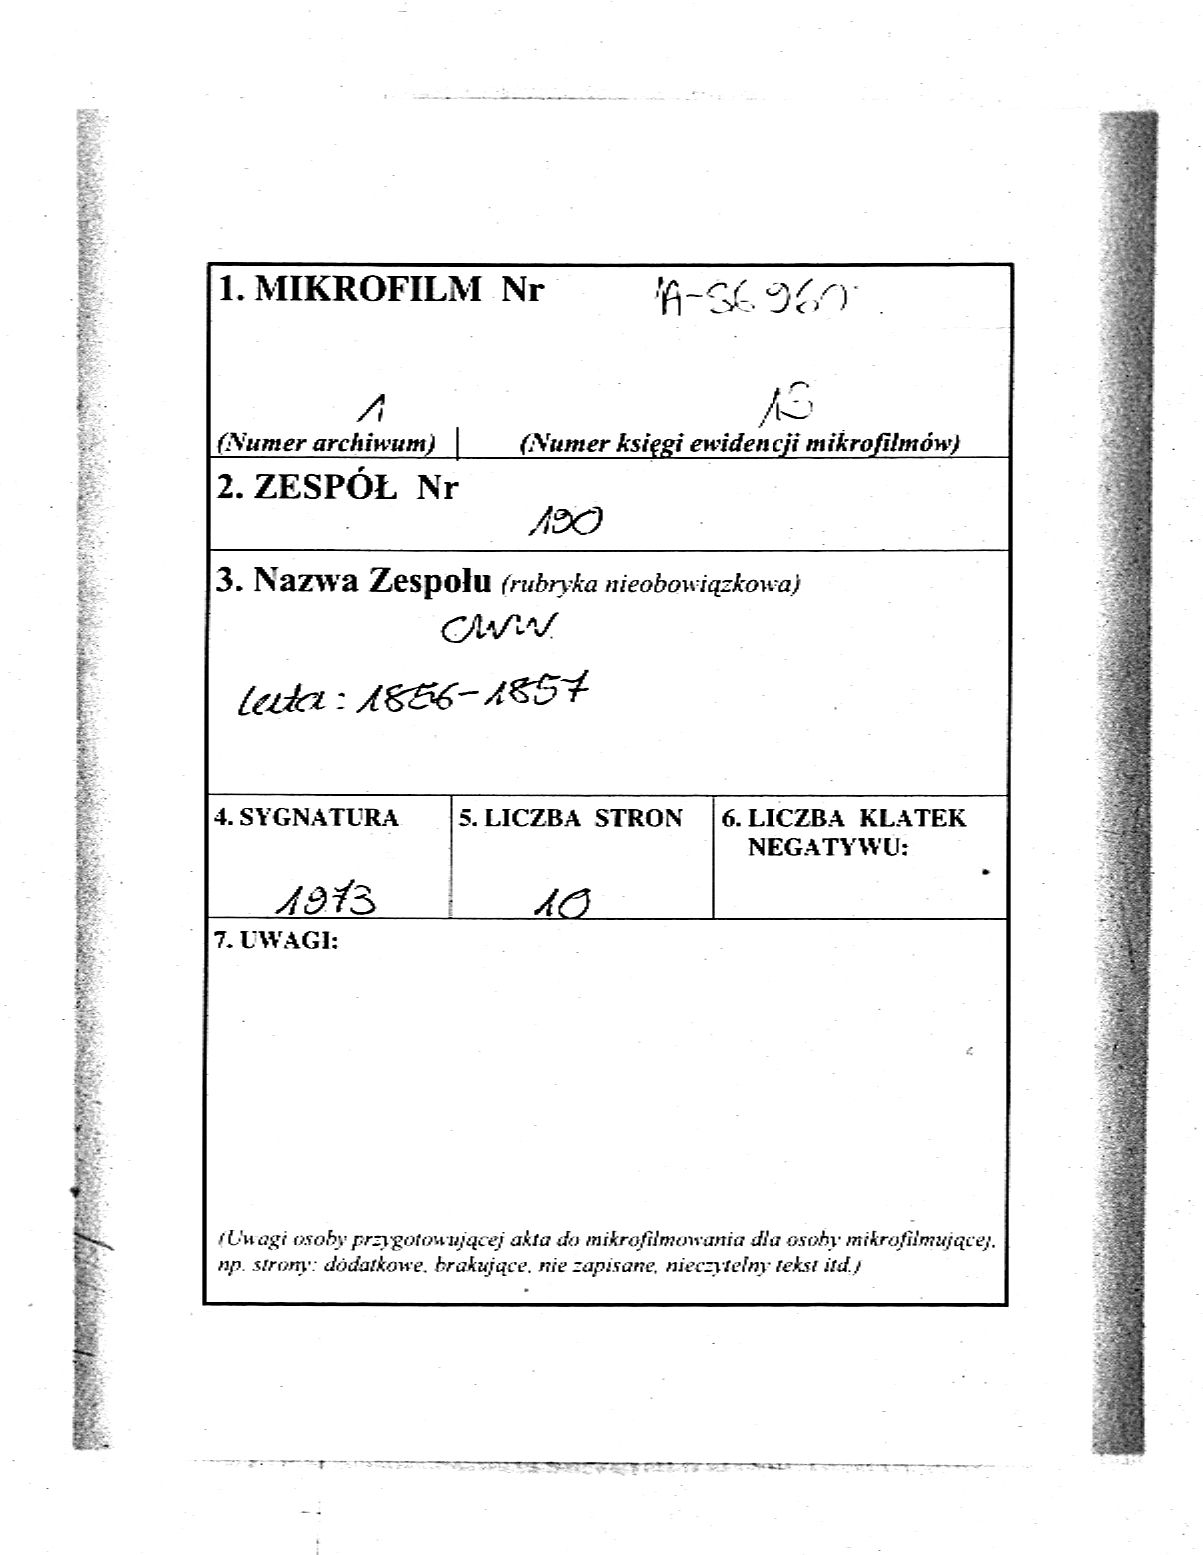 1. MIKROFILM Nr
1
(Numer archiwum) (Numer księgi ewidencji mikrofilmów)
2. ZESPÓŁ Nr
190
3. Nazwa Zespołu (rubryka nieobowiązkowa)
CWW
lata: 1856-1857
4. SYGNATURA 5. LICZBA STRON 6. LICZBA KLATEK
NEGATYWU:
1973 10
7. UWAGI:
(Uwagi osoby przygotowującej akta do mikrofilmowania dla osoby mikrofilmującej,
np. strony: dodatkowe, brakujące, nie zapisane, nieczytelny tekst itd.)